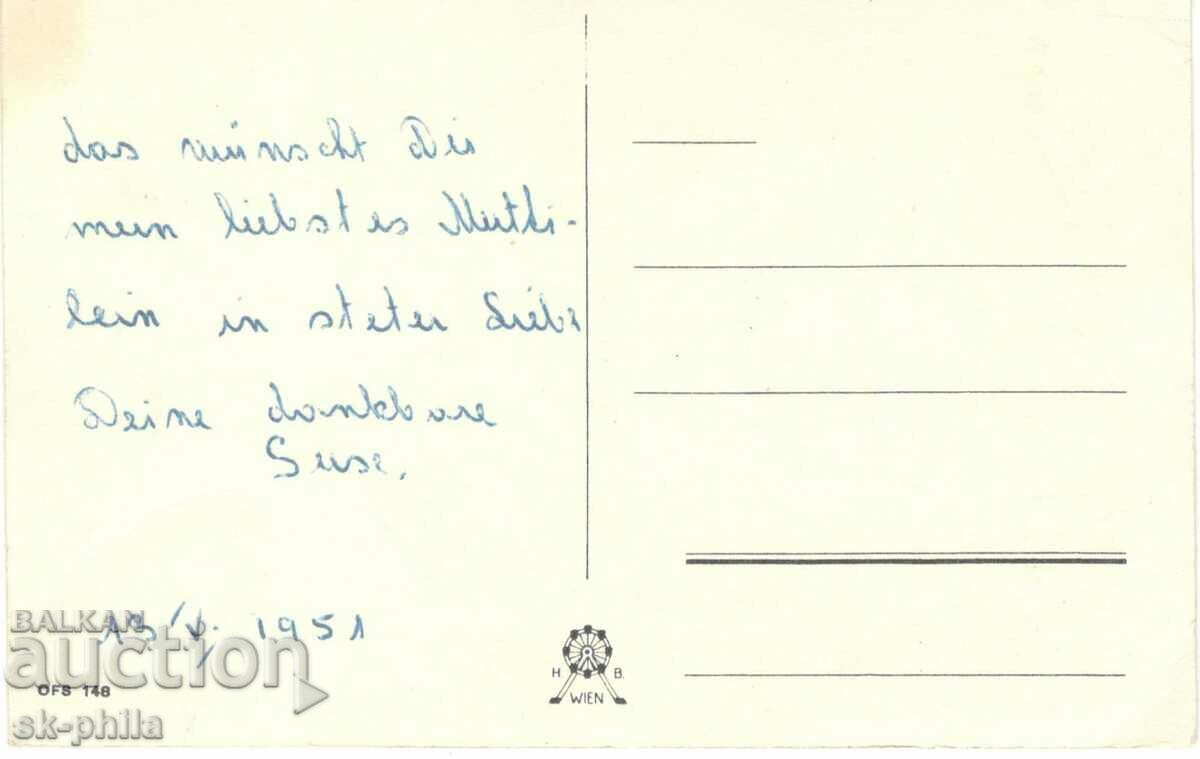 das wünscht Dir
mein liebstes Mutti-
lein in steter Liebe
Deine dankbare
Suse.
13/V. 1951
BALKAN
auction
OFS 148
sk-phila
H. B.
WIEN